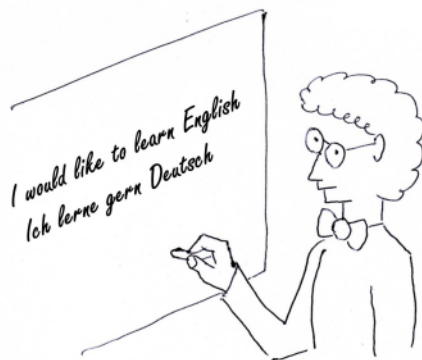 I would like to learn English
Ich lerne gern Deutsch